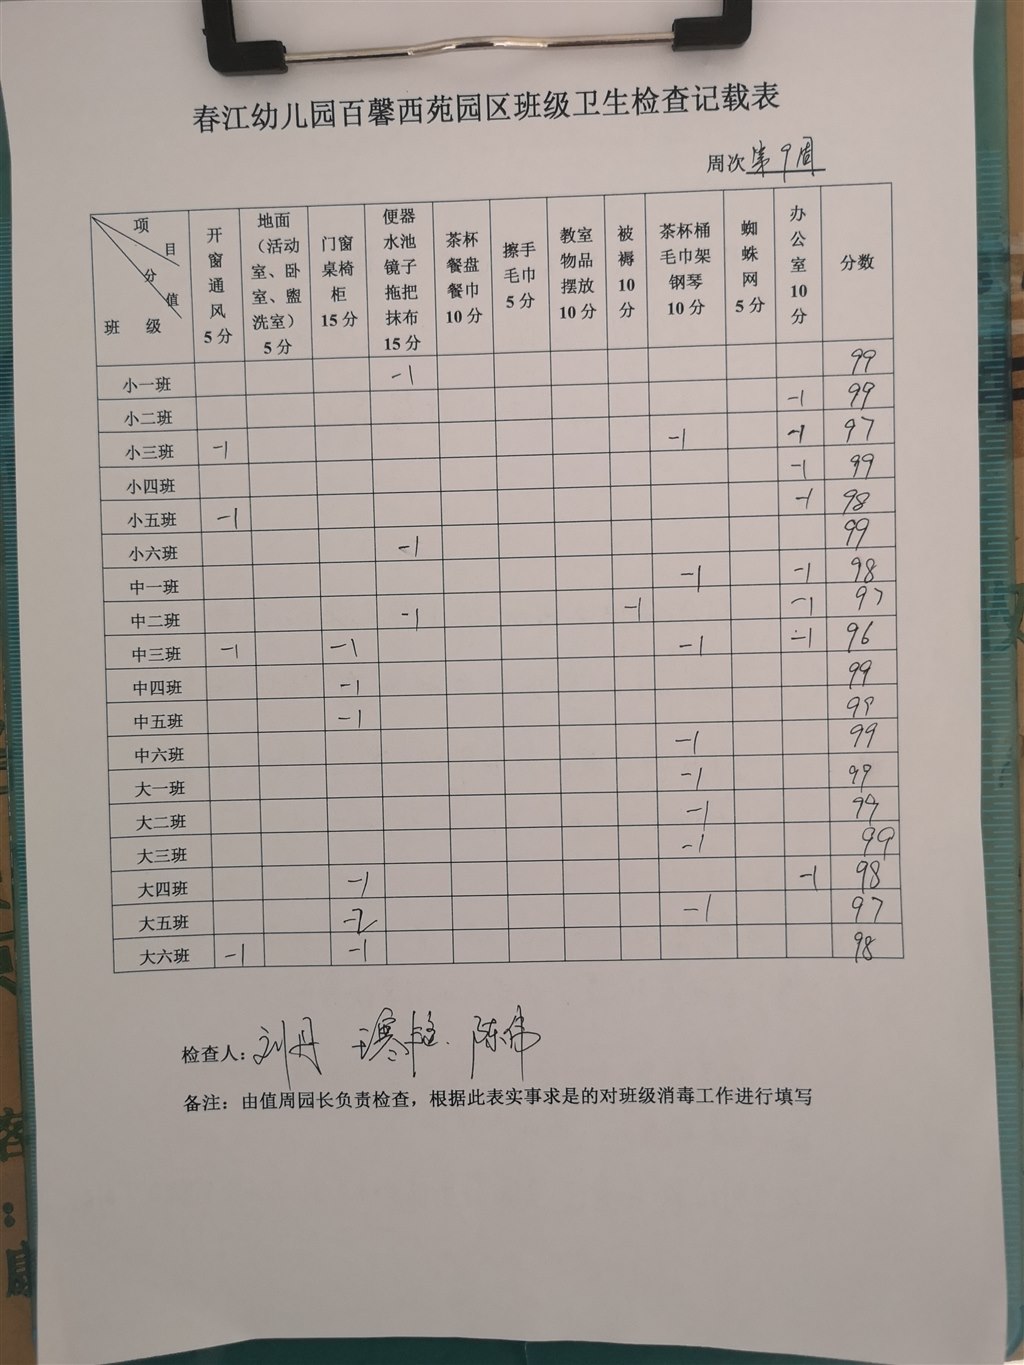 春江幼儿园百馨西苑园区班级卫生检查记载表
周次第9周
项目 分值 班级 开窗通风5分 地面（活动室、卧室、盥洗室）5分 门窗桌椅柜15分 便器水池镜子拖把抹布15分 茶杯餐盘餐巾10分 擦手毛巾5分 教室物品摆放10分 被褥10分 茶杯桶毛巾架钢琴10分 蜘蛛网5分 办公室10分 分数
小一班 -1 99
小二班 -1 99
小三班 -1 -1 -1 97
小四班 -1 99
小五班 -1 -1 98
小六班 -1 99
中一班 -1 -1 98
中二班 -1 -1 -1 97
中三班 -1 -1 -1 -1 96
中四班 -1 99
中五班 -1 99
中六班 -1 99
大一班 -1 99
大二班 -1 99
大三班 -1 99
大四班 -1 -1 98
大五班 -2 -1 97
大六班 -1 -1 98
检查人：刘丹 陈伟
备注：由值周园长负责检查，根据此表实事求是的对班级消毒工作进行填写